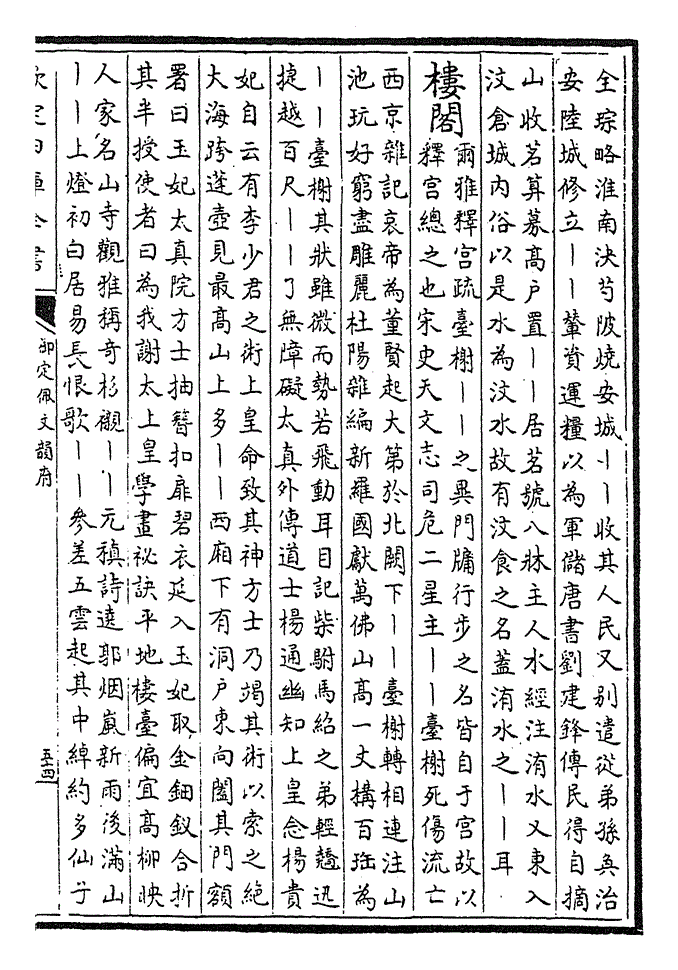 全琮略淮南決芍陂燒安城丨丨收其人民又别遣從弟孫奐治
安陸城修立丨丨輦資運糧以為軍儲唐書劉建鋒傳民得自摘
山收茗算募髙户置丨丨居茗號八牀主人水經注洧水又東入
汶倉城内俗以是水為汶水故有汶食之名葢洧水之丨丨耳
樓閣
爾雅釋宫疏臺榭丨丨之異門牗行步之名皆自于宫故以
釋宫總之也宋史天文志司危二星主丨丨臺榭死傷流亡
西京雜記哀帝為董賢起大第於北闕下丨丨臺榭轉相連注山
池玩好窮盡雕麗杜陽雜編新羅國獻萬佛山髙一丈搆百為
丨丨臺榭其狀雖微而勢若飛動耳目記柴駙馬紹之弟輕趫迅
捷越百尺丨丨了無障礙太真外傳道士楊通幽知上皇念楊貴
妃自云有李少君之術上皇命致其神方士乃竭其術以索之絶
大海跨蓬壺見最髙山上多丨丨西廂下有洞户東向闔其門額
署曰玉妃太真院方士抽簪扣扉碧衣延入玉妃取金鈿釵合折
其半授使者曰為我謝太上皇學畫祕訣平地樓臺偏宜髙柳映
人家名山寺觀雅稱竒杉襯丨丨元稹詩逺郭烟嵐新雨後滿山
丨丨上燈初白居易長恨歌丨丨參差五雲起其中綽約多仙子
欽定四庫全書
御定佩文韻府
五十四